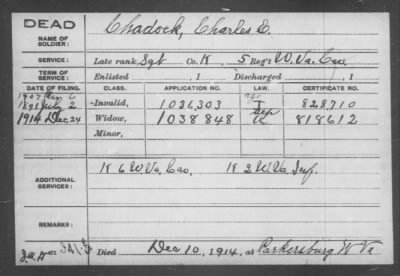 DEAD
NAME OF SOLDIER: Chadock, Charles E.
SERVICE: Late rank, Sgt Co. K 5 Reg't W. Va. Cav.
TERM OF SERVICE: Enlisted , 1 Discharged , 1
DATE OF FILING. CLASS. APPLICATION NO. LAW. CERTIFICATE NO.
1907 6
1891 July 2 Invalid, 1036,303 I 828710
1914 Dec 24 Widow, 1038848 818612
Minor,
ADDITIONAL SERVICES: K 6 W. Va. Cav. K 2 W. Va. Inf.
REMARKS:
Died Dec 10, 1914, at Parkersburg W Va